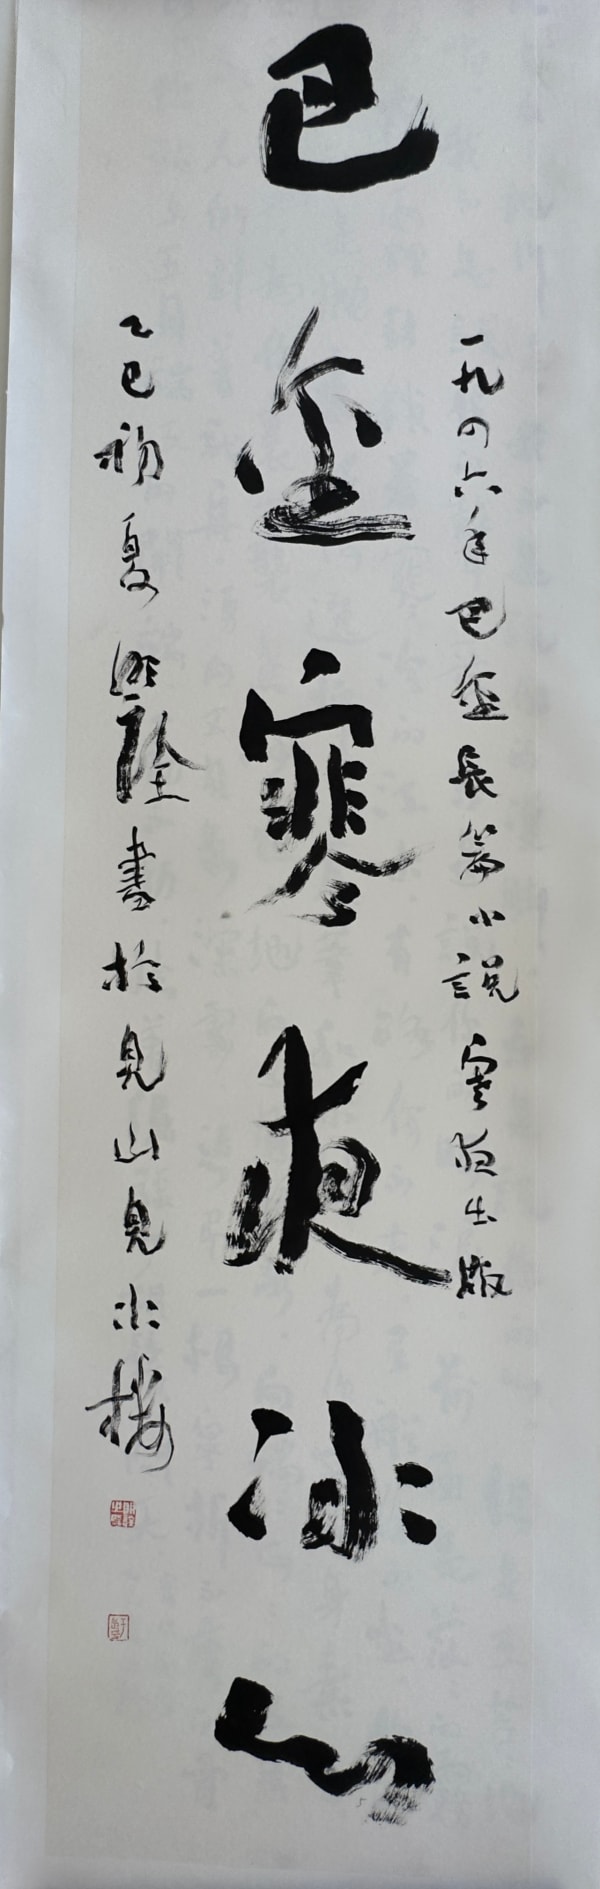 一九四六年巴金長篇小説寒夜出版
巴金寒夜冰心
乙巳初夏書於見山見水樓